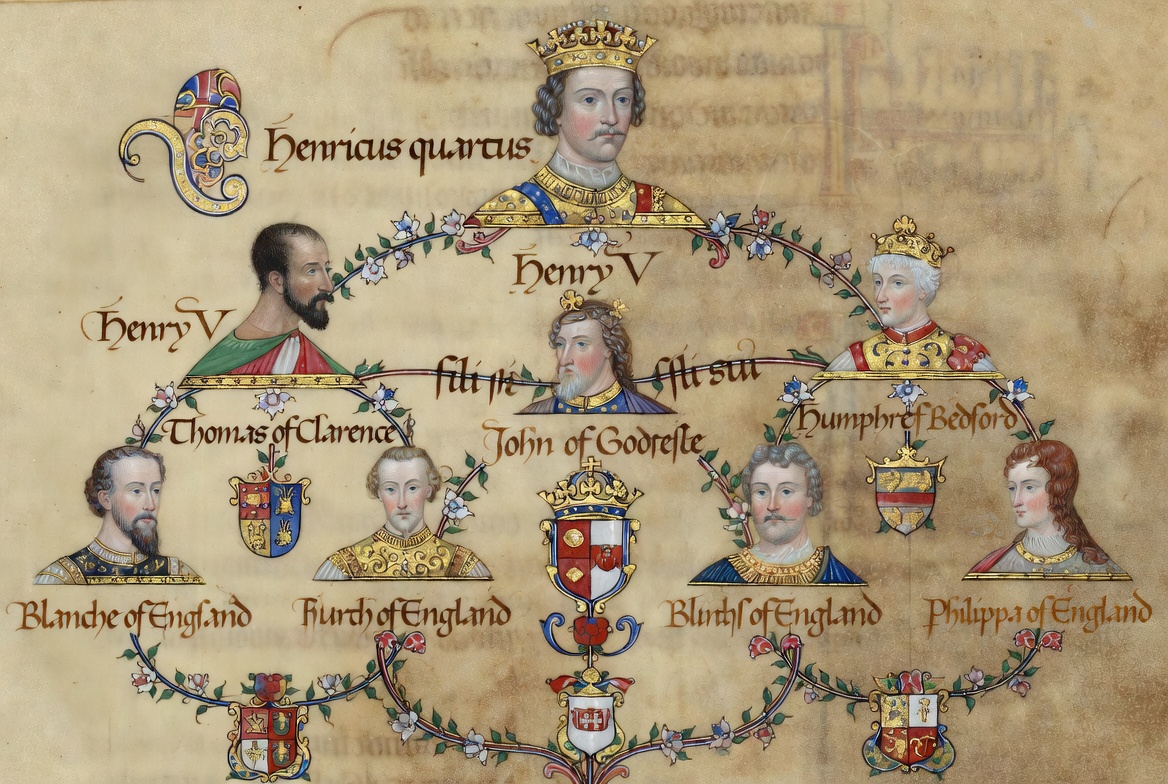 Henricus quartus
Henry V
Henry V
fili
Thomas of Clarence
John of Godreste
Humphref Bedford
Blanche of England
hurch of England
Bluths of England
Philippa of England